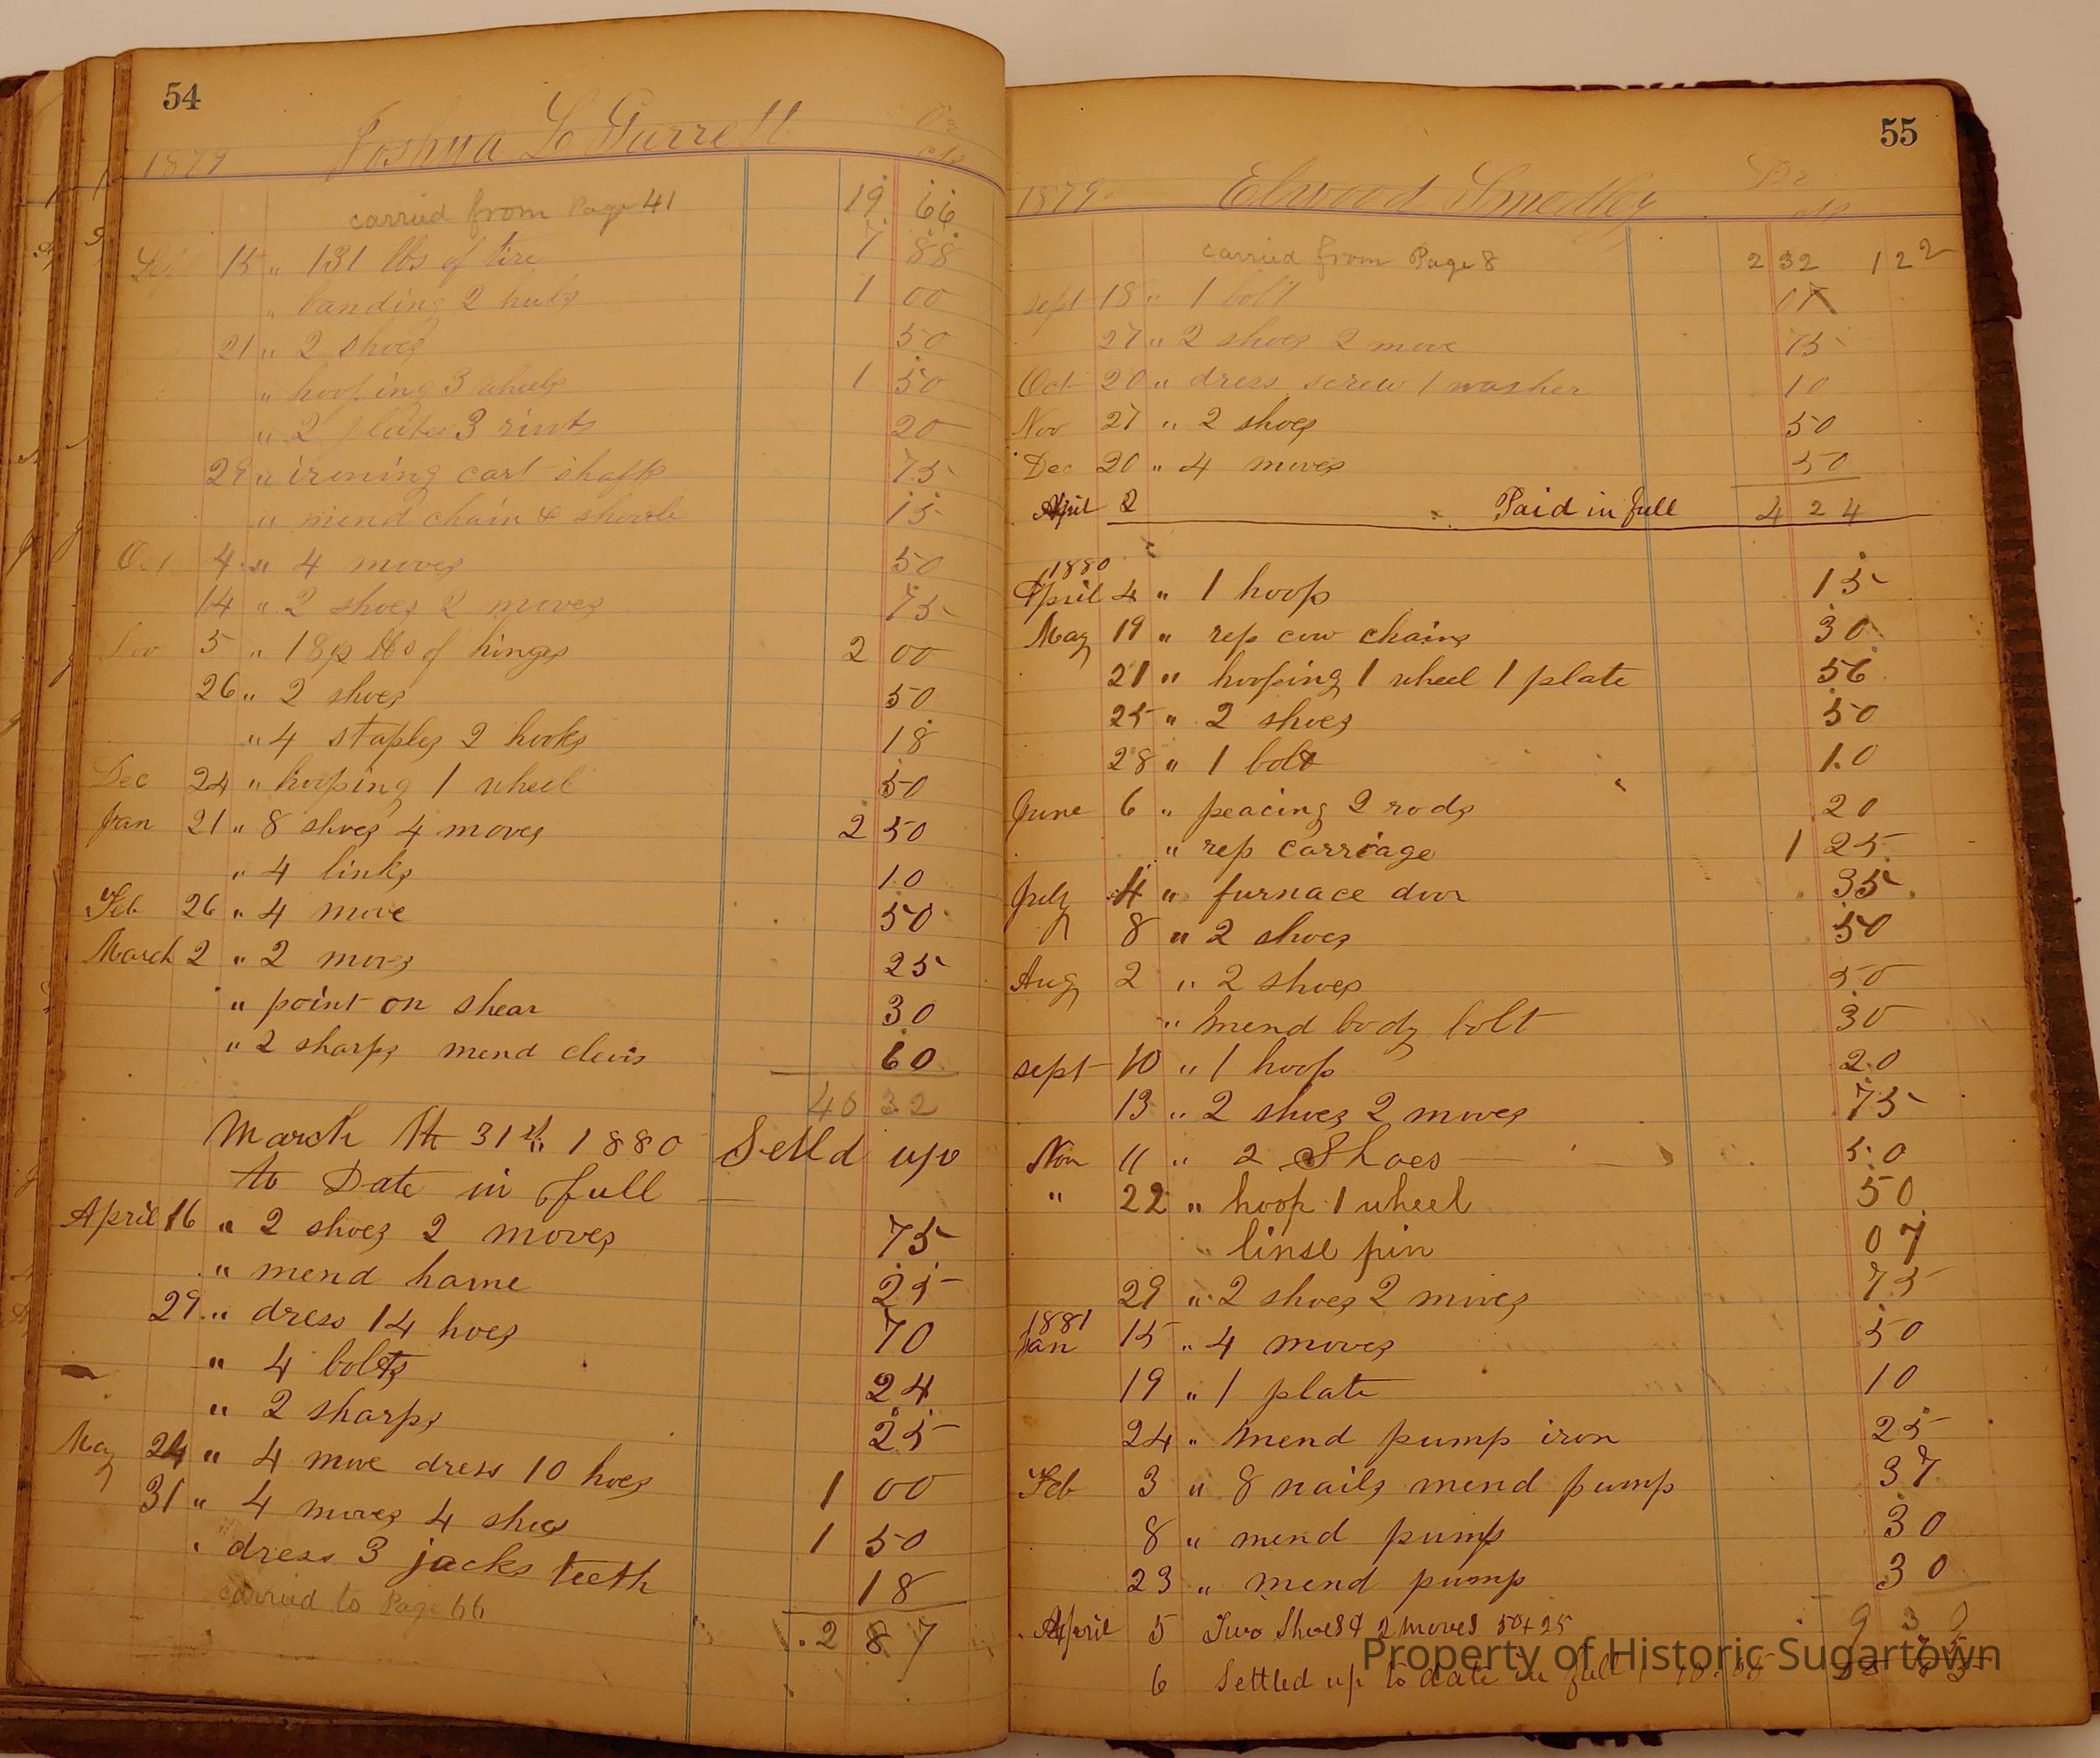 54
1879 Joshua L Garrett Dr
cts
carried from Page 41 19 66
Sept 15 " 131 lbs of tire 7 88
" banding 2 hubs 1 00
21 " 2 shoes 50
" hooping 3 wheels 1 50
" 2 plates 3 rivits 20
29 " irening cart shafts 75
" mend chain & shovle 15
Oct 4 " 4 moves 50
14 " 2 shoes 2 moves 75
Nov 5 " lbs of hinges 2 00
26 " 2 shoes 50
" 4 staples 2 hooks 18
Dec 24 " hooping 1 wheel 50
Jan 21 " 8 shoes 4 moves 2 50
" 4 links 10
Feb 26 " 4 move 50
March 2 " 2 moves 25
" point on shear 30
" 2 sharps mend clevis 60
32
March 31st 1880 Settld up
to Date in full
April 16 " 2 shoes 2 moves 75
" mend hame 25
29 " dress 14 hoes 70
" 4 bolts 24
" 2 sharps 25
May 24 " 4 move dress 10 hoes 1 00
31 " 4 moves 4 shoes 1 50
" dress 3 jacks teeth 18
carried to Page 66
2 87
55
1879 Elwood Smedley Dr
cts
carried from Page 8 2 32 1 22
sept 18 " 1 bolt
27 " 2 shoes 2 move 75
Oct 20 " dress screw 1 washer 10
Nov 27 " 2 shoes 50
Dec 20 " 4 moves 50
April 2 Paid in full 4 24
1880
April 4 " 1 hoop 15
May 19 " rep cow chains 30
21 " hooping 1 wheel 1 plate 56
25 " 2 shoes 50
28 " 1 bolt 10
June 6 " peacing 2 rods 20
" rep carriage 1 25
July 4 " furnace door 35
8 " 2 shoes 50
Aug 2 " 2 shoes 50
" mend body bolt 30
sept 10 " 1 hoop 20
13 " 2 shoes 2 moves 75
Nov 11 " 2 Shoes 50
" 22 " hoop 1 wheel 50
" linse pin 07
29 " 2 shoes 2 moves 75
1881
Jan 15 " 4 moves 50
19 " 1 plate 10
24 " mend pump iron 25
Feb 3 " 8 nails mend pump 37
8 " mend pump 30
23 " mend pump 30
April 5 Two Shoes & 2 moves 50+25
6 Settled up to date in full
Property of Historic Sugartown